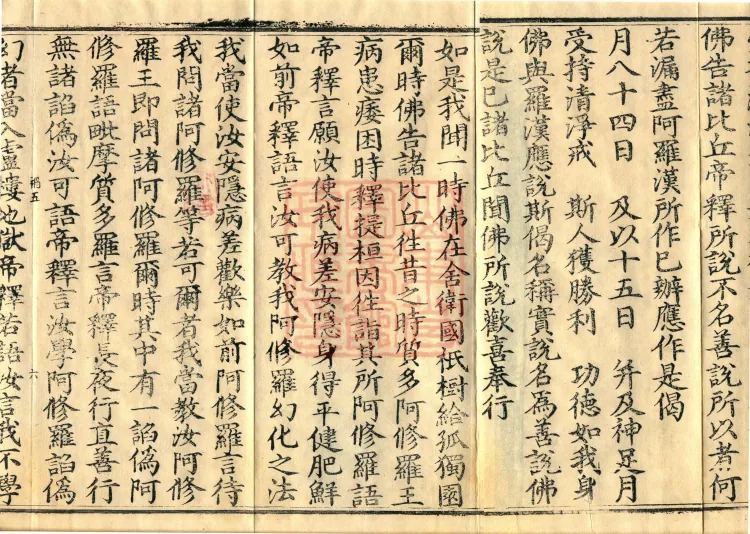 佛告諸比丘帝釋所說不名善說所以者何
若漏盡阿羅漢所作已辦應作是偈
月八十四日　及以十五日　并及神足月
受持清淨戒　斯人獲勝利　功德如我身
佛與羅漢應說斯偈名稱實說名為善說佛
說是已諸比丘聞佛所說歡喜奉行
如是我聞一時佛在舍衛國祇樹給孤獨園
爾時佛告諸比丘往昔之時質多阿修羅王
病患痿困時釋提桓因往詣其所阿修羅語
帝釋言願汝使我病差安隱身得平健肥鮮
如前帝釋語言汝可教我阿修羅幻化之法
我當使汝安隱病差歡樂如前阿修羅言待
我問諸阿修羅等若可爾者我當教汝阿修
羅王即問諸阿修羅爾時其中有一諂偽阿
修羅語毗摩質多羅言帝釋長夜行直善行
無諸諂偽汝可語帝釋言汝學阿修羅諂偽
幻者當入盧樓地獄帝釋若語汝言我不學